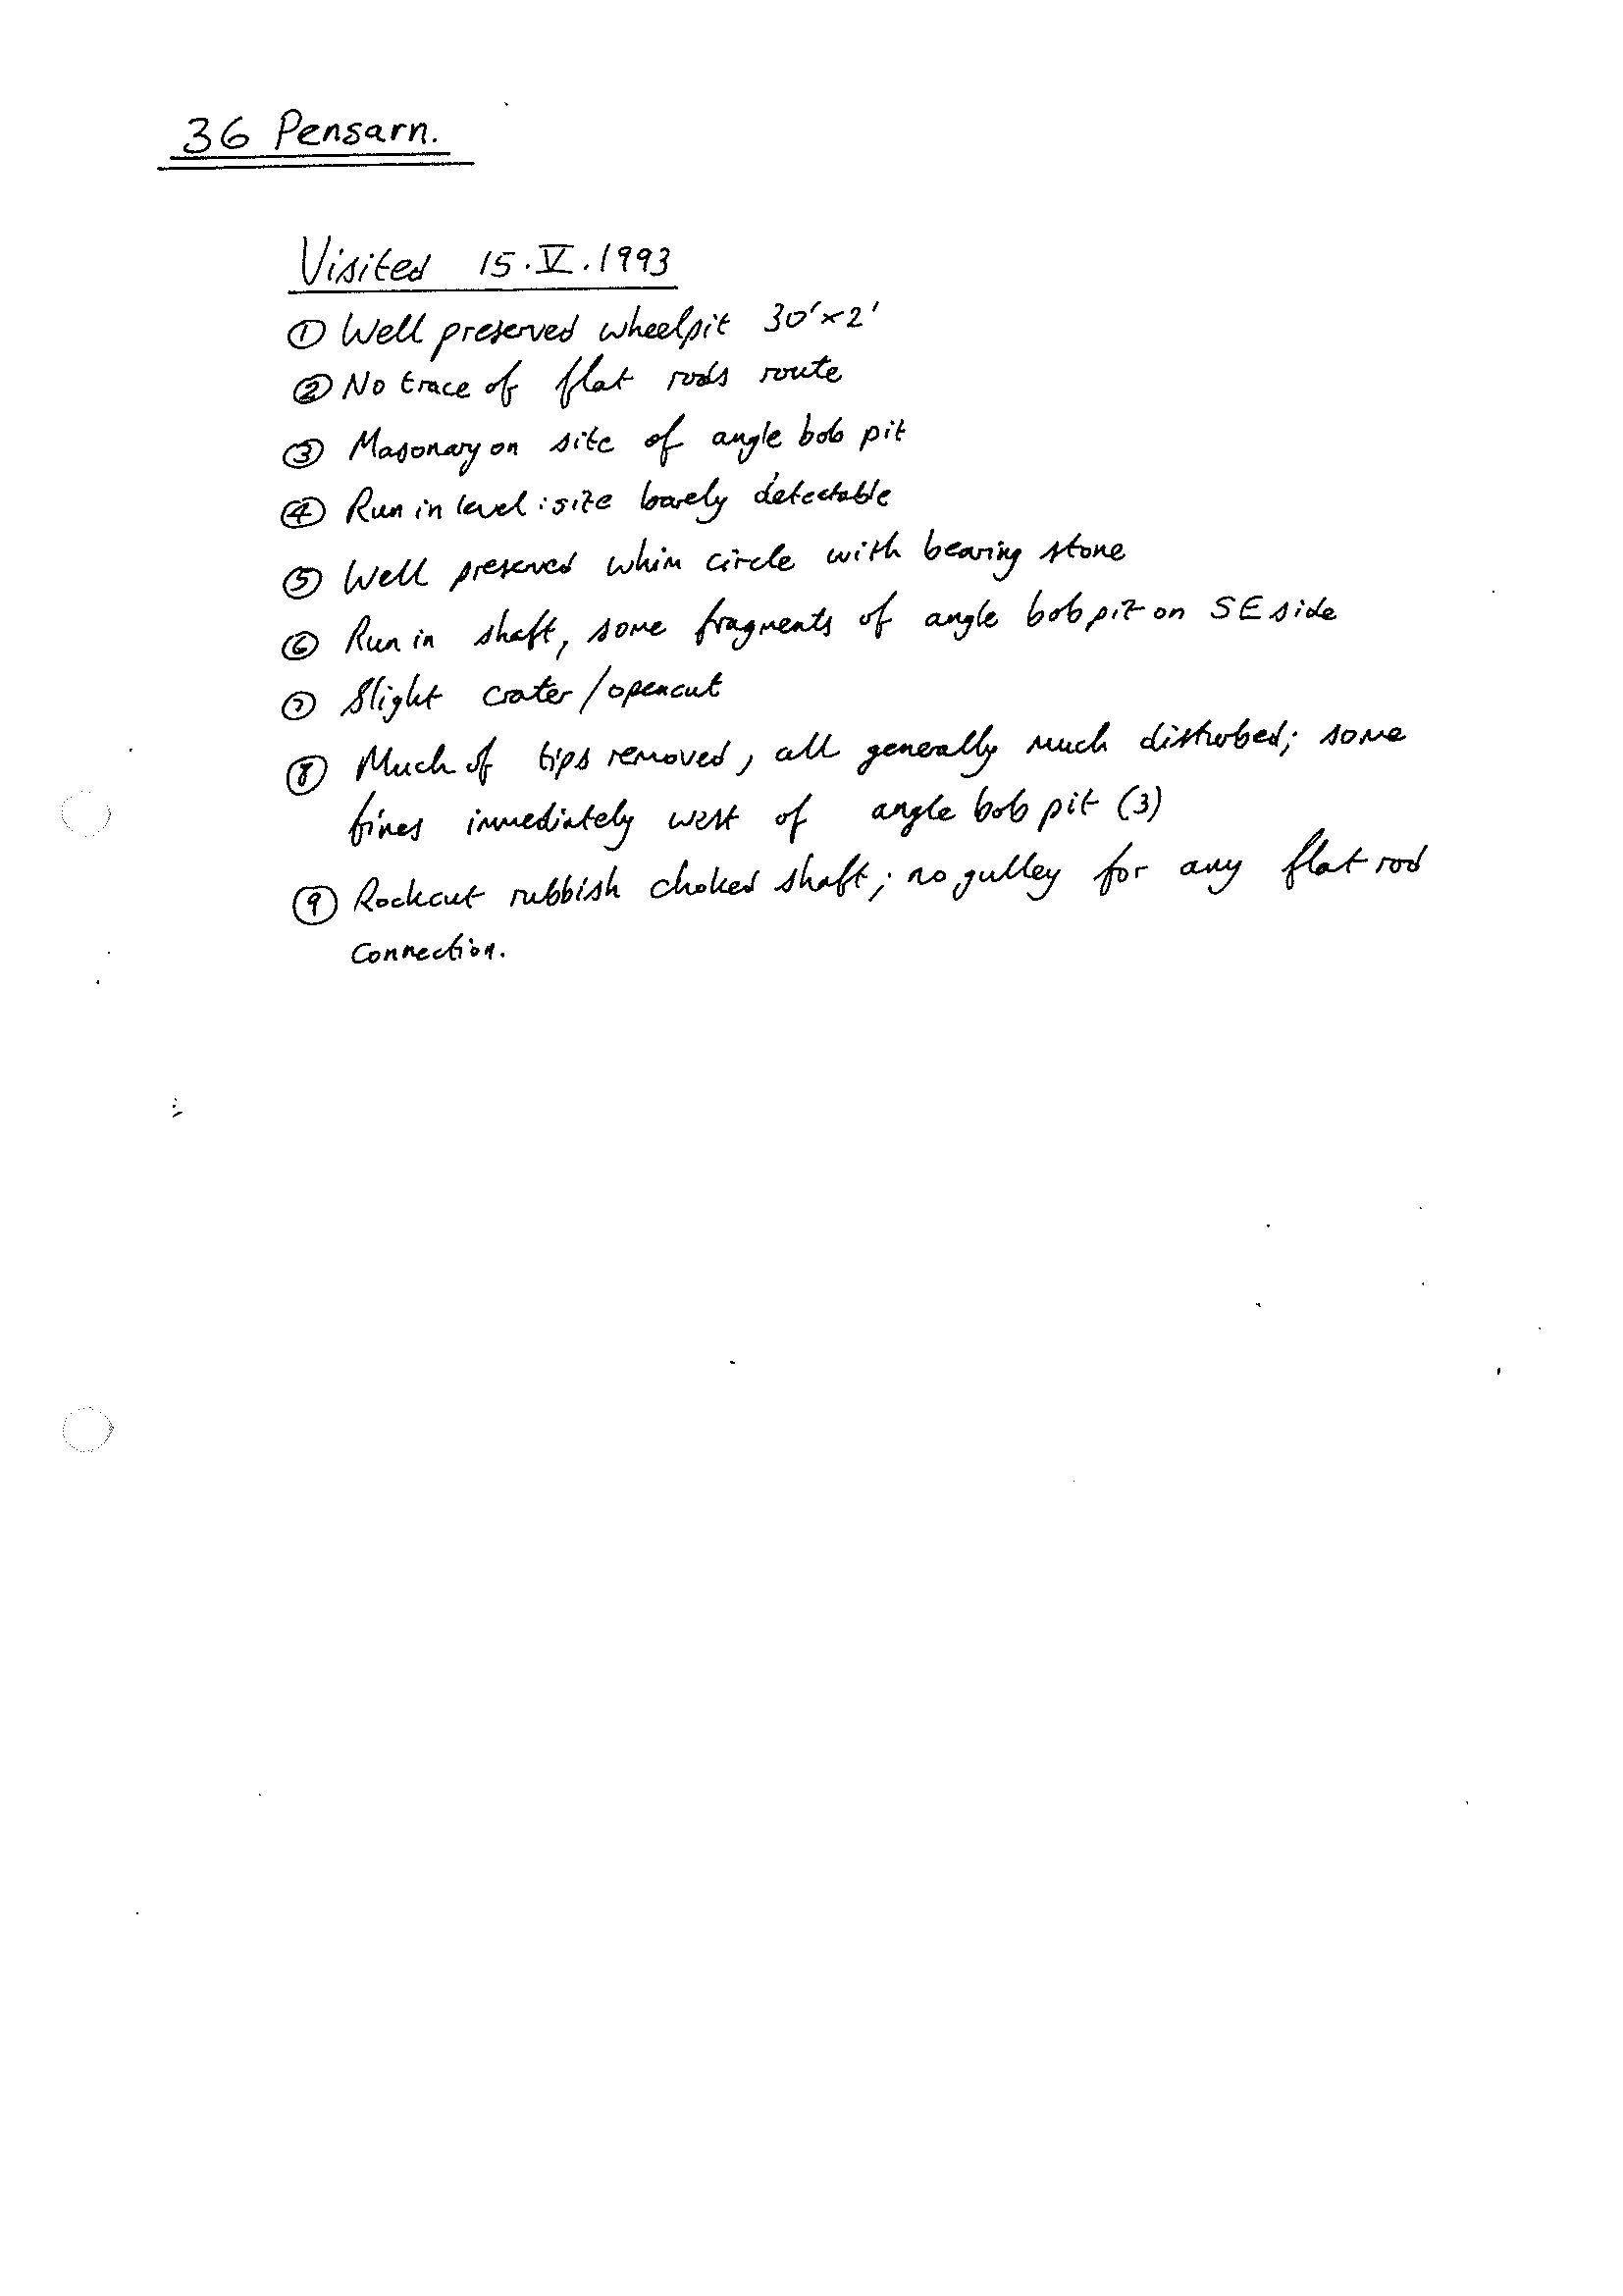 36 Pensarn.
Visited 15.V.1993
① Well preserved wheelpit 30'×2'
② No trace of flat rods route
③ Masonary on site of angle bob pit
④ Run in level: site barely detectable
⑤ Well preserved whim circle with bearing stone
⑥ Run in shaft, some fragments of angle bob pit on SE side
⑦ Slight crater/opencut
⑧ Much of tips removed, all generally much disturbed; some
fines immediately west of angle bob pit (3)
⑨ Rockcut rubbish choked shaft; no gulley for any flat rod
connection.